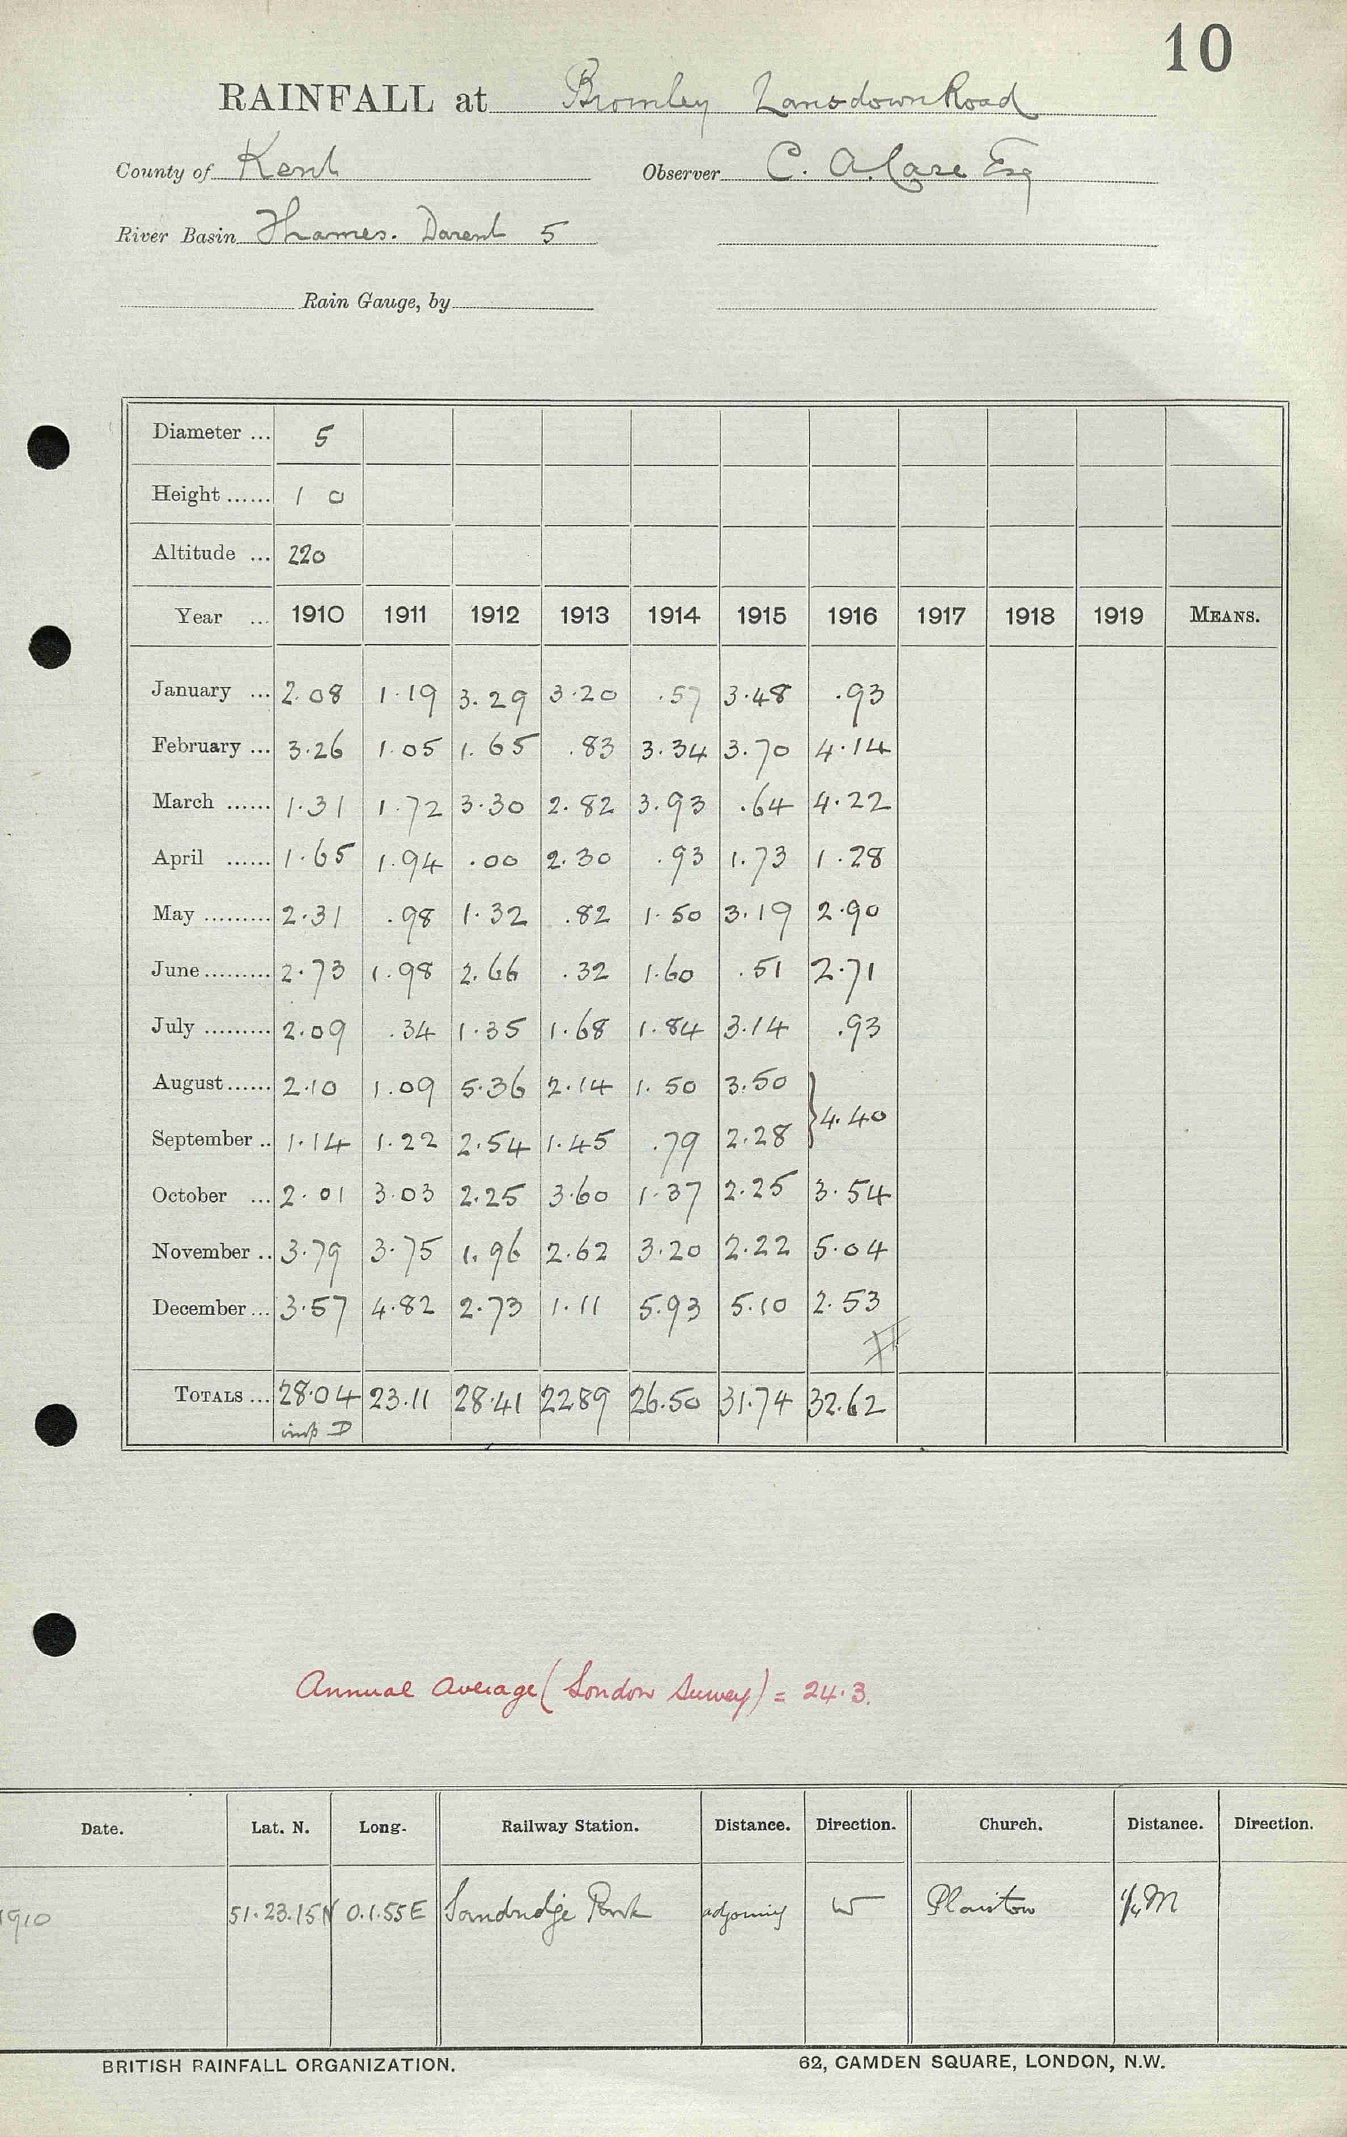 10
RAINFALL at Bromley Lansdown Road
County of Kent Observer C. A. Case Esq
River Basin Thames. Darent 5
Rain Gauge, by
Diameter ... 5
Height ...... 1 0
Altitude ... 220
Year ... 1910 1911 1912 1913 1914 1915 1916 1917 1918 1919 MEANS.
January ... 2.08 1.19 3.29 3.20 .57 3.48 .93
February ... 3.26 1.05 1.65 .83 3.34 3.70 4.14
March ...... 1.31 1.72 3.30 2.82 3.93 .64 4.22
April ...... 1.65 1.94 .00 2.30 .93 1.73 1.28
May ......... 2.31 .98 1.32 .82 1.50 3.19 2.90
June ......... 2.73 1.98 2.66 .32 1.60 .51 2.71
July ......... 2.09 .34 1.35 1.68 1.84 3.14 .93
August ...... 2.10 1.09 5.36 2.14 1.50 3.50
} 4.40
September .. 1.14 1.22 2.54 1.45 .79 2.28
October ... 2.01 3.03 2.25 3.60 1.37 2.25 3.54
November .. 3.79 3.75 1.96 2.62 3.20 2.22 5.04
December ... 3.57 4.82 2.73 1.11 5.93 5.10 2.53
TOTALS ... 28.04 23.11 28.41 22 89 26.50 31.74 32.62
D
Annual Average (London Survey) = 24.3.
Date. Lat. N. Long. Railway Station. Distance. Direction. Church. Distance. Direction.
1910 51.23.15N 0.1.55E Sundridge Park adjoining W Plaistow 1/4 M
BRITISH RAINFALL ORGANIZATION. 62, CAMDEN SQUARE, LONDON, N.W.